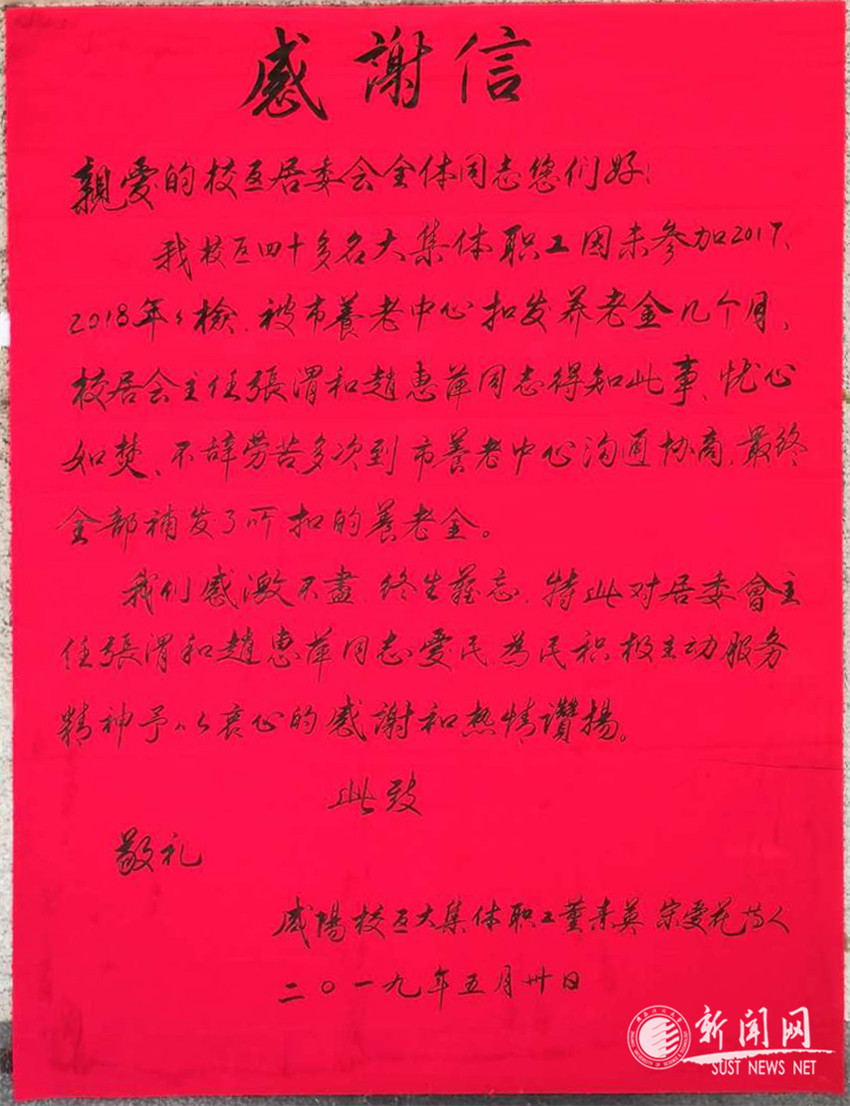 感謝信
親爱的校区居委会全体同志您们好!
我校区四十多名大集体职工因未参加2017、
2018年检,被市養老中心扣发养老金几个月,
校居会主任張渭和趙惠萍同志得知此事、忧心
如焚、不辞劳苦多次到市養老中心沟通协商,最终
全部補发了所扣的養老金。
我们感激不盡,终生難忘,特此对居委會主
任張渭和趙惠萍同志爱民為民积极主动服务
精神予以衷心的感謝和热情讚揚。
此致
敬礼
咸陽校区大集体职工董素英 宗爱花等人
二〇一九年五月卅日
新闻网
SUST NEWS NET